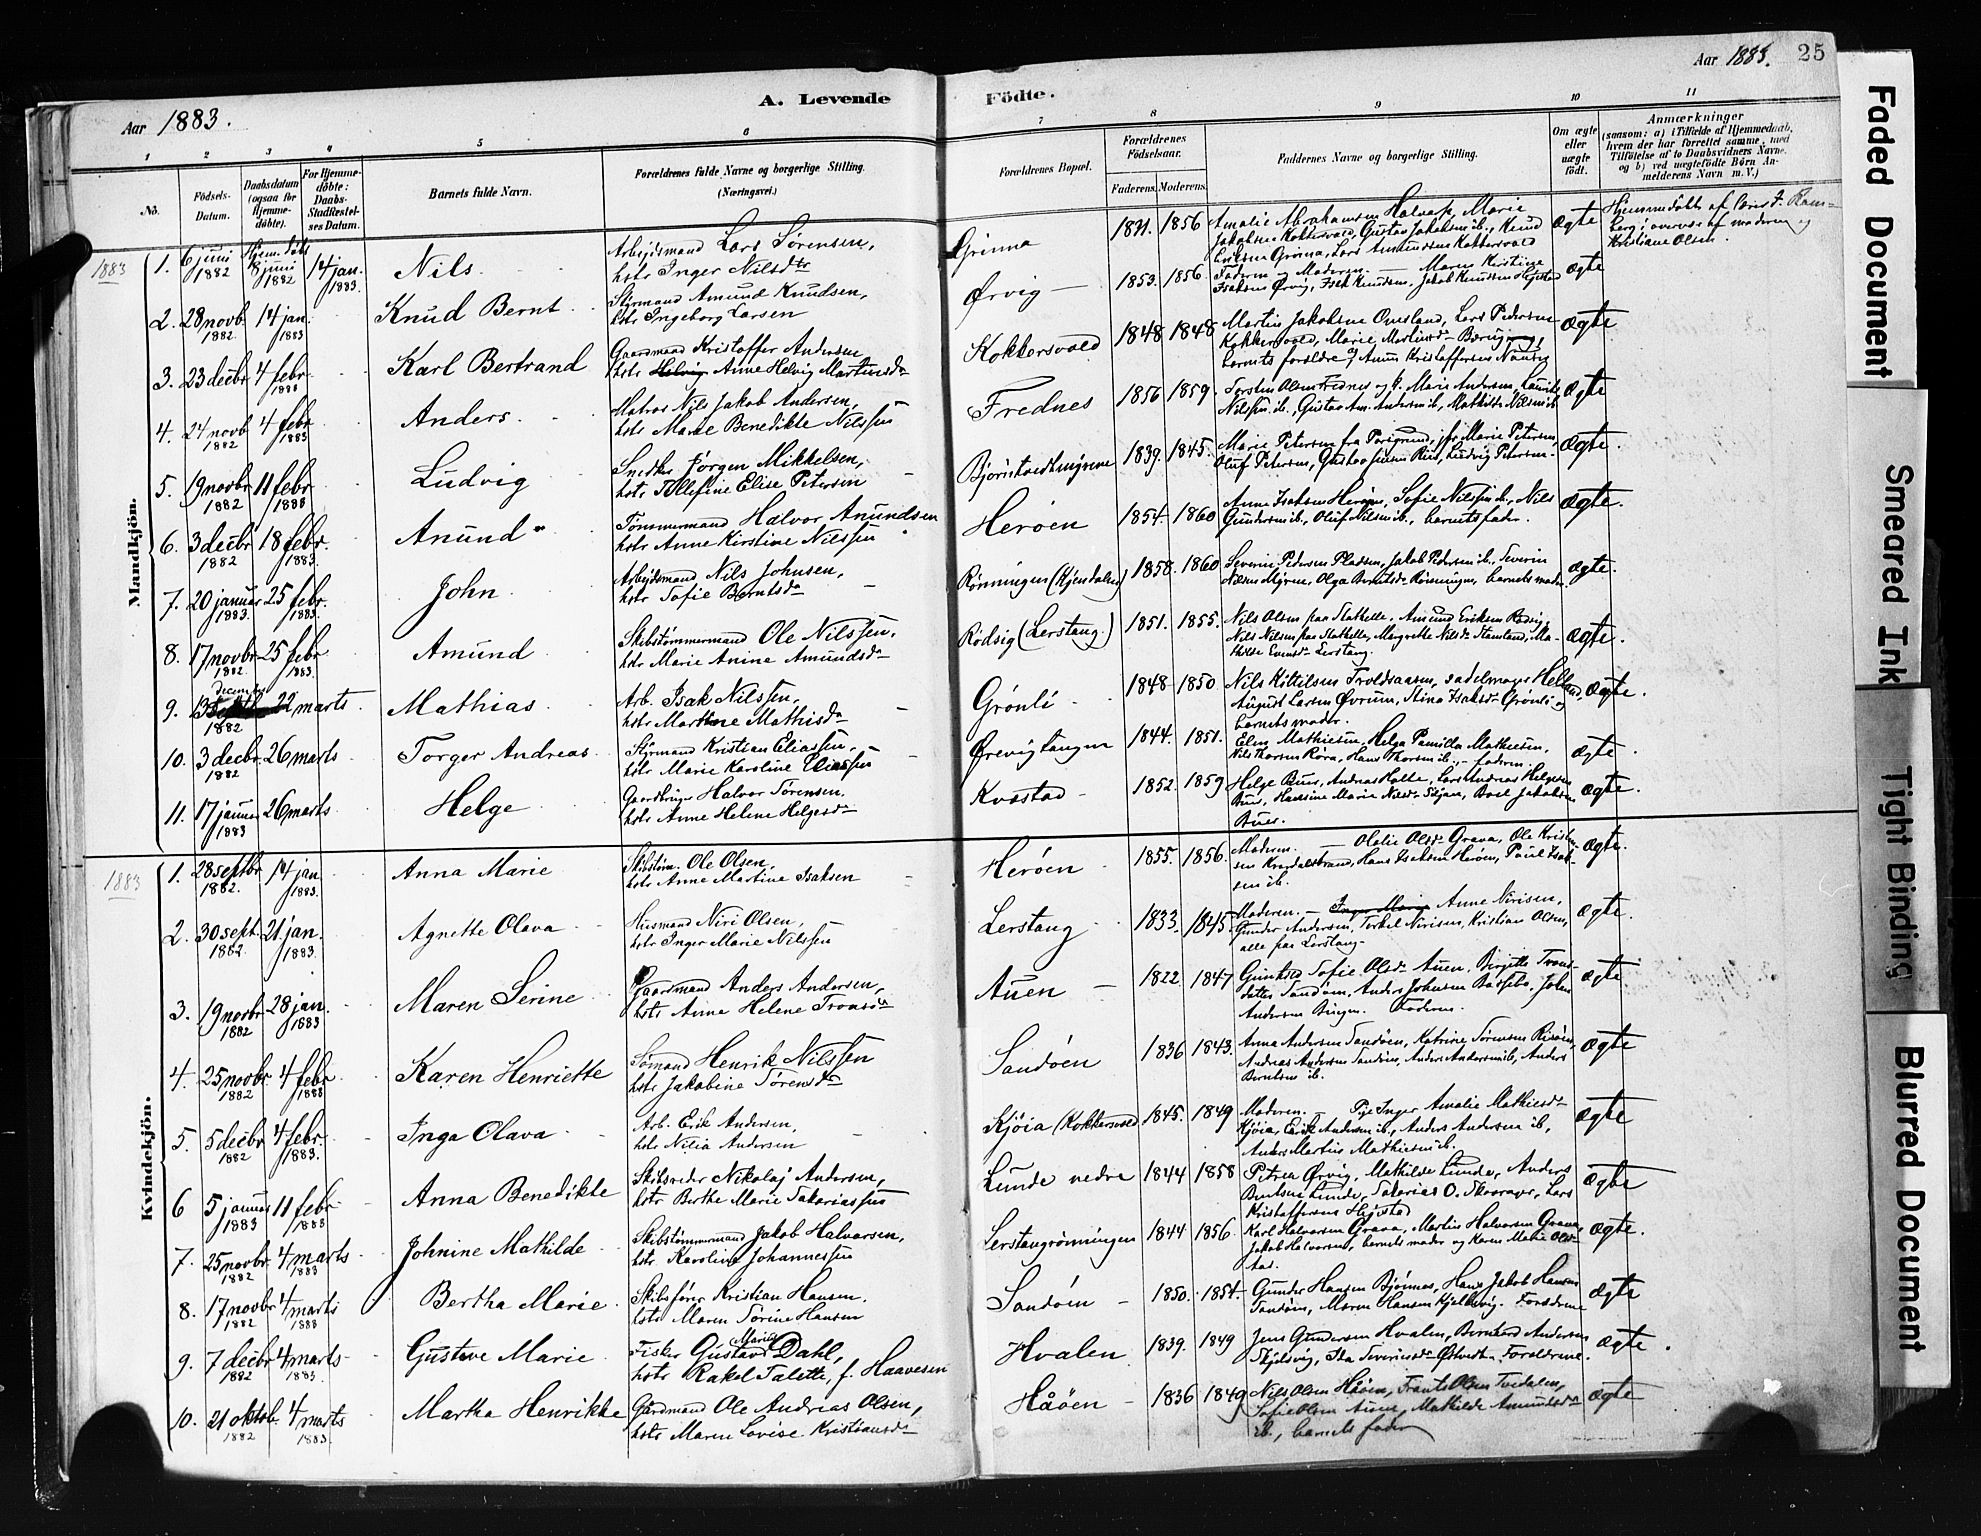 Aar 1883.
A. Levende
Födte.
Aar 1883. 25
1 2 3 4 5 6 7 8 9 10 11
No.
Födsels-Datum.
Daabsdatum (ogsaa for Hjemme-döbte).
For Hjemme-döbte: Daabs-Stadfæstel-ses Datum.
Barnets fulde Navn.
Forældrenes fulde Navne og borgerlige Stilling.
(Næringsvei.)
Forældrenes Bopæl.
Forældrenes Födselsaar.
Faderens. Moderens.
Faddernes Navne og borgerlige Stilling.
Om ægte eller uægte födt.
Anmærkninger
(saasom: a) i Tilfælde af Hjemmedaab,
hvem der har forrettet samme, med
Tilföielse af to Daabsvidners Navne.
og b) ved uægtefödte Börn An-
melderens Navn m. V.)
Mandkjön.
1883 1. 6 juni 1882 Hjem. döbt 8 juni 1882 14 jan. 1883. Nils. Arbejdsmand Lars Sörensen, hstr Inger Nilsdtr Grinna 1831. 1856 Amalie Abrahamsen Halvarp, Marie
Jakobsen Kokkersvold, Gustav Jakobsen ib., Knud
Eriksen Grinna, Lars Amundsen Kokkersvold ægte
Kristiane Olsen.
2. 28 novb. 1882 14 jan. 1883 Knud Bernt Styrmand Amund Knudsen, hstr Ingeborg Larsen Ørvig 1853. 1856. Faderen og Moderen. — Maren Kristine
Isaksen Ørvig, Isak Knudsen, Jakob Knudsen Hejstad ægte
3. 23 decbr 4 febr. 1883 Karl Bertrand Gaardmand Kristoffer Andersen hstr Anne Helvig Martinsdr Kokkersvold 1848 1848 Martin Jakobsen Omsland, Lars Pedersen
Kokkersvold, Marie Martinsdr
barnets forældre ægte
4. 24 novb 1882 4 febr. 1883 Anders. Matros Nils Jakob Andersen, hstr Marie Benedikte Nilssen Frednes 1856 1859. Torsten Olsen Frednes og f. Marie Andersen, Laurits
Nilssen ib., Gustav Am. Andersen ib., Mathilde Nilsen ib ægte
5. 19 novbr 1882 11 febr 1883 Ludvig Snedker Jörgen Mikkelsen, hstr Tollefine Elise Petersen Bjørnstvedtmyrene 1839. 1845. Marie Petersen fra Porsgrund, jfr Marie Petersen,
Oluf Petersen, Gustav Jensen Ries, Ludvig Petersen. ægte.
6. 3 decbr 1882 18 febr. 1883. Anund Tömmermand Halvor Anundsen hstr Anne Kirstine Nilssen Herøen 1854. 1860 Anne Isaksen Herøen, Sofie Nilssen ib., Nils
Gundersen ib., Oluf Nilsen ib., barnets fader. ægte.
7. 20 januar 1883. 25 febr. 1883. John. Arbejdsmand Nils Johnsen, hstr Sofie Berntsdr Rønningen (Kjendalen) 1858. 1860 Severin Pedersen Pladsen, Jakob Pedersen ib., Severin
Nilsen Myren, Olga Berntsdr Rønningen, barnets moder ægte.
8. 17 novbr 1882. 25 febr 1883. Amund Skibstömmermand Ole Nilssen. hstr Marie Anine Amundsdr Rødsig (Lerstang.) 1851. 1855. Nils Olsen paa Stathelle, Amund Eriksen Rødsig,
Nils Nilsen paa Stathelle, Margrethe Nilsdr Stamland, Ma-
thilde Evensdr Lerstang. ægte.
9. december 13 1882 22 marts Mathias Arb. Isak Nilssen, hstr Marthine Mathisdr Grønli 1848 1850 Nils Kittilsen Troldsaasen, sadelmager Helland,
August Larsen Øvrum, Stina Isaksdr Grønli og
barnets moder. ægte.
10. 3 decbr. 1882 26 marts Torger Andreas Styrmand Kristian Eliassen, hstr Marie Karoline Eliassen Ørevigtangen 1844. 1851. Elen Mathiesen, Helga Pamilla Mathiesen,
Nils Thorsen Røra, Hans Thorsen ib., - faderen ægte
11. 17 januar 1883 26 marts Helge Gaardbruger Halvor Törensen. hstr Anne Helene Helgesdr Kvæstad 1852. 1859 Helge Buer, Andreas Holte, Lars Andreas Helgesen
Buer, Hansine Marie Nilsdr Stjan, Boel Jakobsen
Buer. ægte.
Kvindekjön.
1883 1. 28 septbr 1882. 14 jan 1883. Anna Marie Skibstöm. Ole Olsen. hstr Anne Martine Isaksen Herøen 1855. 1856. Moderen. — Olalie Olsdr Grava, Ole Kristen-
sen Krogdalstrand, Hans Isaksen Herøen, Poul Isak-
sen ib. ægte.
2. 30 sept. 1882 21 jan. 1883. Agnethe Olava Husmand Niri Olsen, hstr Inger Marie Nilssen Lerstang 1833. 1845 Moderen. — Inger Marie Anne Nirisen,
Gunder Andersen, Torkel Nirisen, Kristian Olsen,
alle paa Lerstang. ægte.
3. 19 novbr 1882 28 jan. 1883 Maren Serine Gaardmand Anders Andersen, hstr Anne Helene Tronsdr Auen 1822. 1847 Gunhild Sofie Olsdr Auen, Birgitte Trons-
datter Sandøen, Anders Johnsen Basfebo, John
Andersen Bingen. Faderen. ægte
4. 25 novbr 1882 4 febr 1883 Karen Henriette Sömand Henrik Nilssen hstr Jakobine Törensdr Sandøen 1836 1843. Anna Andersen Sandøen, Katrine Törensen Risöen,
Andreas Andersen Sandøen, Anders Andersen ib, Anders
Berntsen ib. ægte
5. 5 decbr 1882 4 febr 1883. Inga Olava Arb. Erik Andersen, hstr Nilia Andersen Kjøia (Kokkersvold 1845. 1849 Moderen. — Pige Inger Amalie Mathisdr
Kjøia, Erik Andersen ib., Anders Andersen ib,
Anders Martin Mathiesen ib. ægte
6 5 januar 1883 11 febr 1883 Anna Benedikte Skibsreder Nikolaj Andersen, hstr Berthe Marie Sakariassen Lunde nedre 1844 1858 Petrea Ørvig, Mathilde Lunde, Anders
Bentsen Lunde, Sakarias O. Skavraker, Lars
Kristoffersen Hejstad ægte
7. 25 novbr 1882 4 marts 1883 Johnine Mathilde Skibstömmermand Jakob Halvorsen, hstr Karoline Johannessen Lerstangrønningen 1844 1856 Karl Halvorsen Grava, Martin Halvorsen Grava,
Jakob Halvorsen, barnets moder og Karen Marie Olsdr
Aas. ægte.
8. 17 novbr 1882 4 marts 1883 Bertha Marie Skibsförer Kristian Hansen. hstr Maren Torine Hansen Sandøen 1850. 1854. Gunder Hansen Bjønnes, Hans Jakob Hansen
Sandøen, Maren Hansen Kjellsvig. Forældrene ægte
9. 7 decbr 1882 4 marts 1883. Gustave Marie Fisker Gustav Maria Dahl, hstr Rakel Talette, f. Haavesen Hvalen 1839. 1849 Jens Gundersen Hvalen, Bernhard Andersen
Skjelsvig, Ida Severinsdr Østvedt. Forældrene. ægte.
10. 21 oktob. 1882 4 marts 1883. Martha Henrikke Gårdmand Ole Andrias Olsen, hstr Maren Lovise Kristiansdr Håøen 1836 1849 Nils Olsen Håøen, Frants Olsen Tvedalen,
Sofie Olsen Auen, Mathilde Amundsdr
ib., barnets fader ægte
Faded Document
Smeared Ink
Tight Binding
Blurred Document